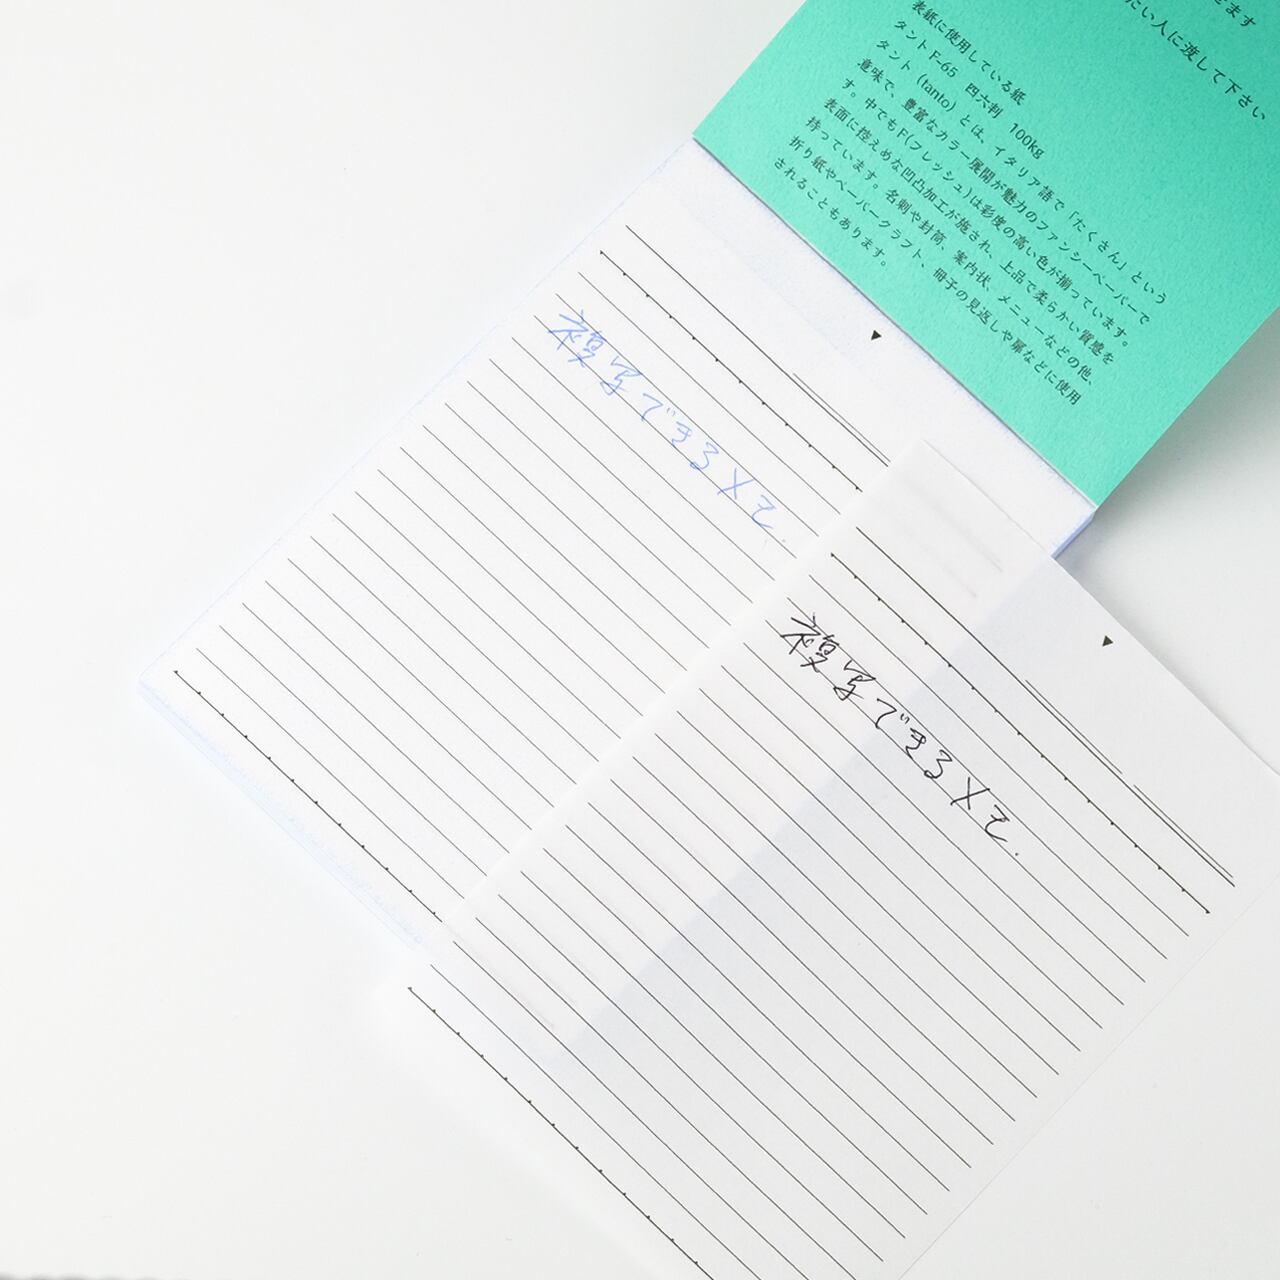 きます
たい人に渡して下さい
表紙に使用している紙
タントF-65 四六判 100kg
タント（tanto）とは、イタリア語で「たくさん」という
意味で、豊富なカラー展開が魅力のファンシーペーパーで
す。中でもF(フレッシュ)は彩度の高い色が揃っています。
表面に控えめな凹凸加工が施され、上品で柔らかい質感を
持っています。名刺や封筒、案内状、メニューなどの他、
折り紙やペーパークラフト、冊子の見返しや扉などに使用
されることもあります。
複写できるメモ.
複写できるメモ.